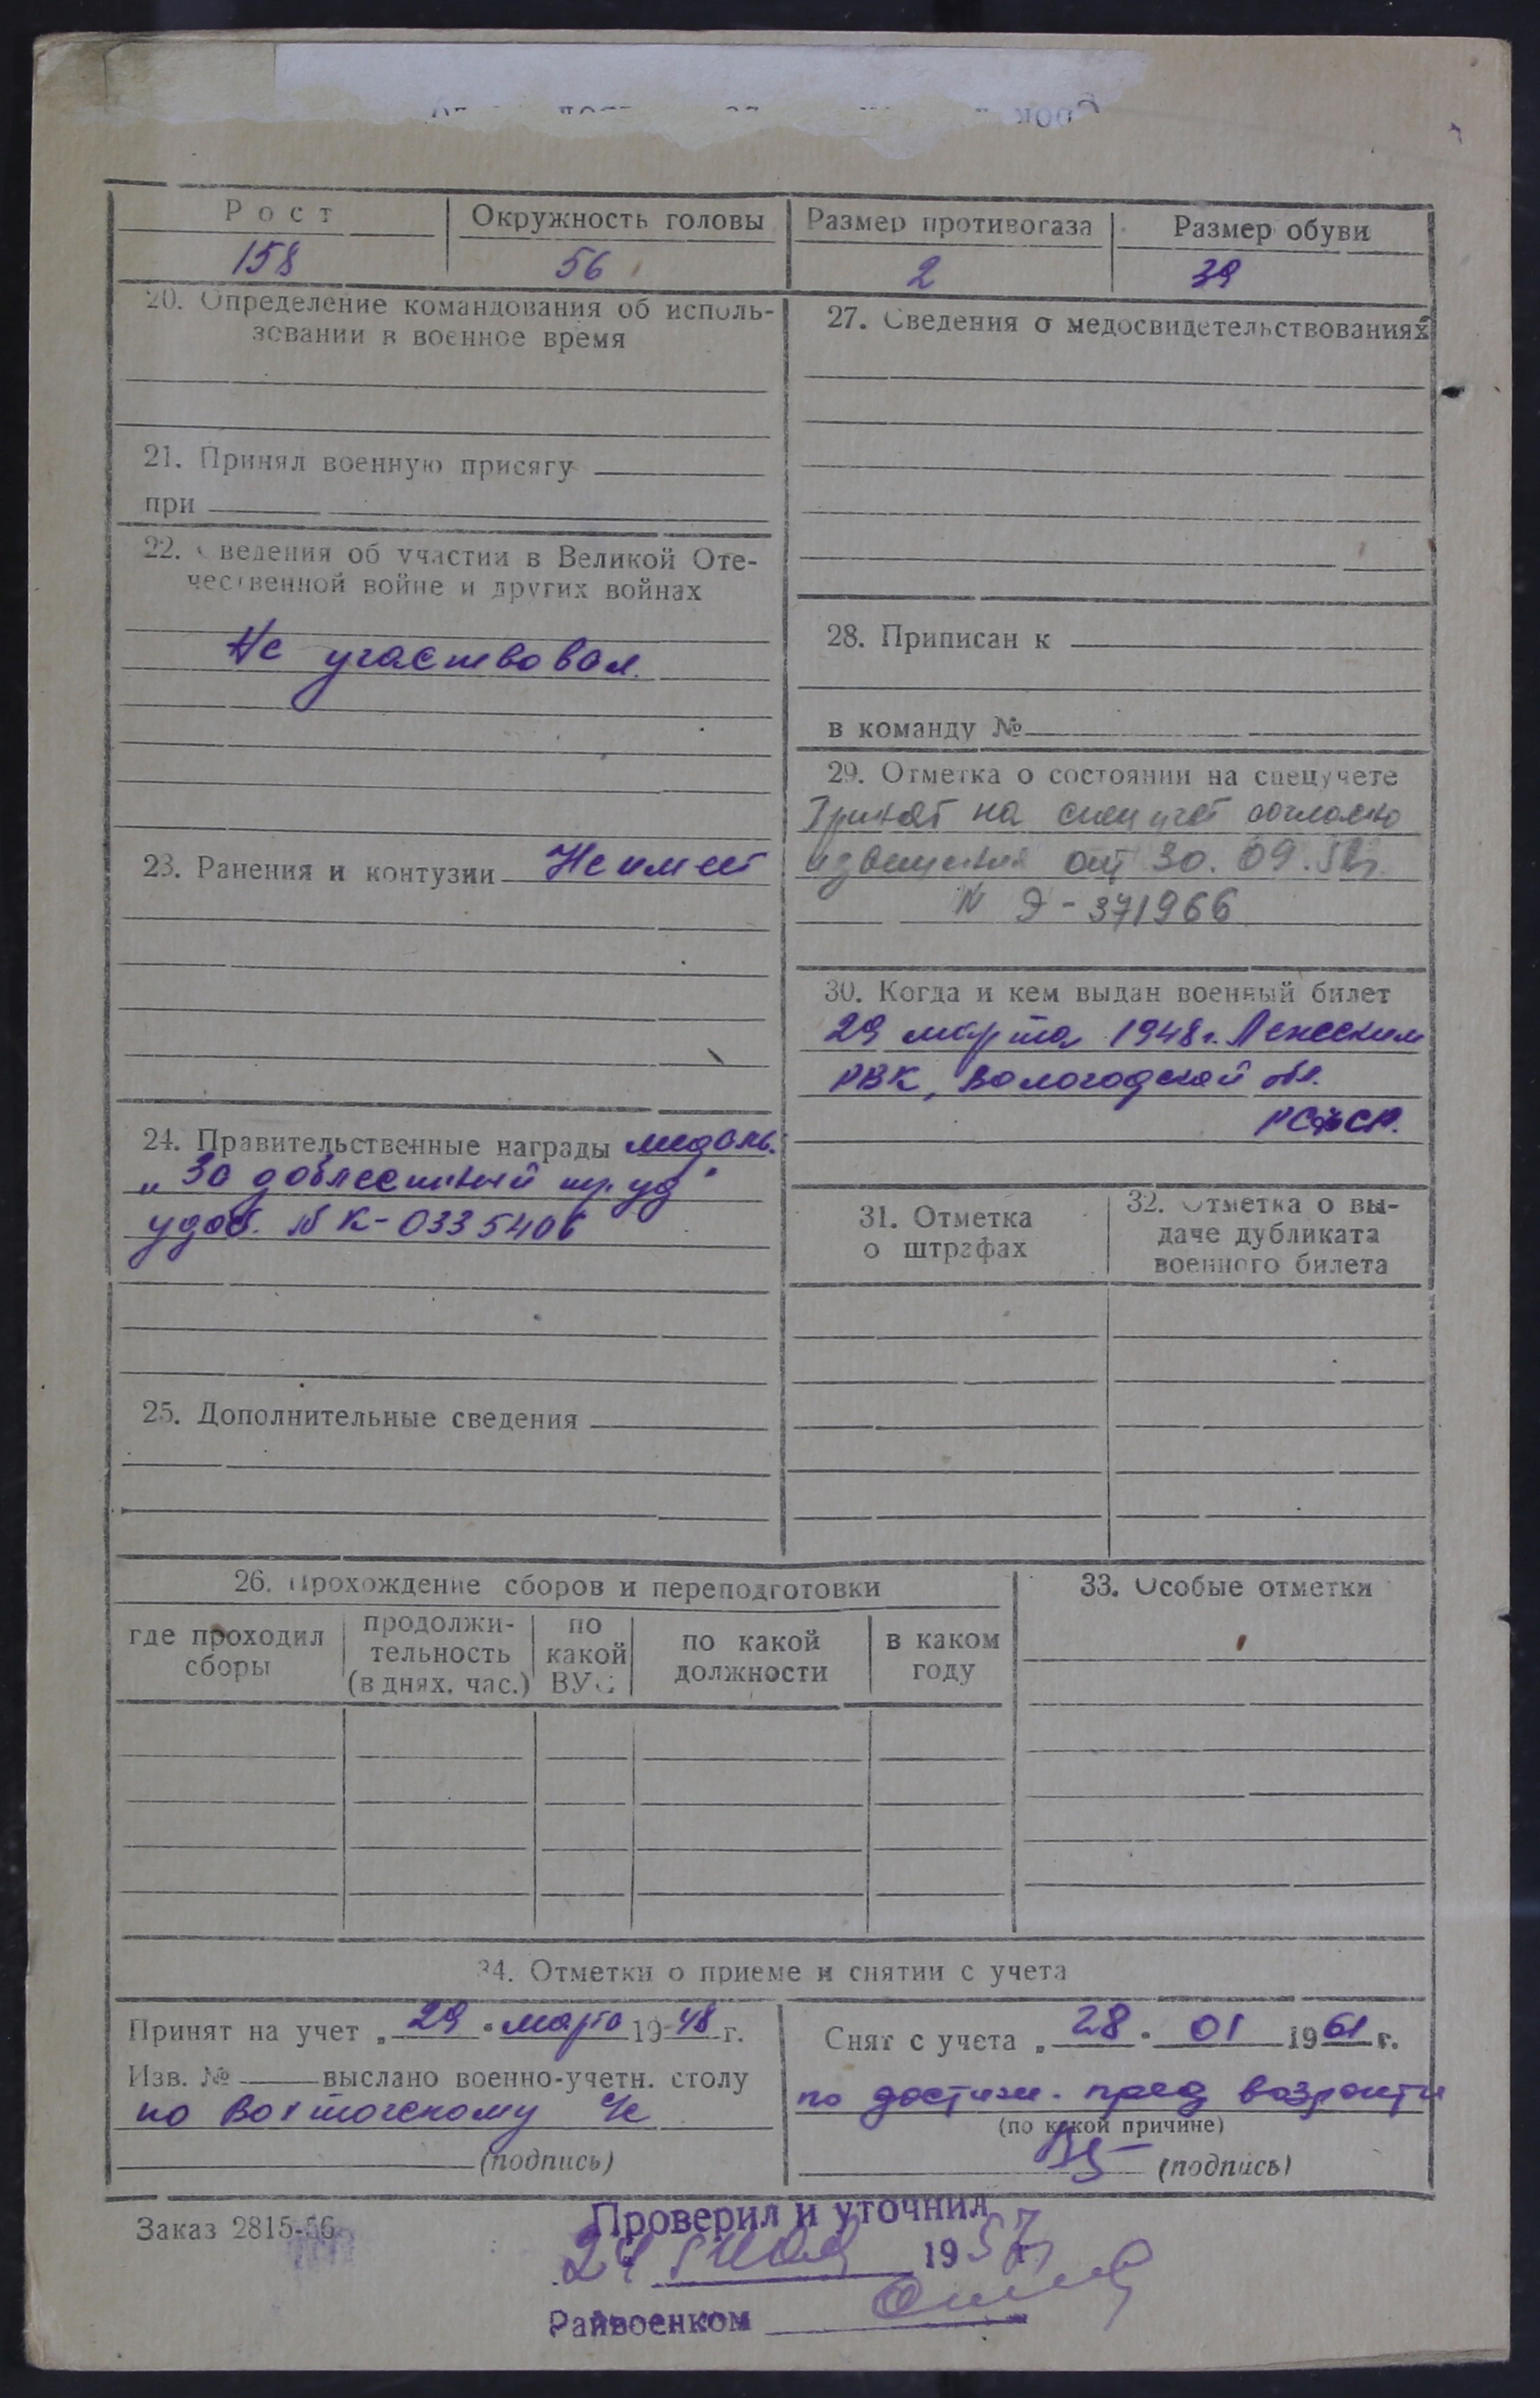 Рост
Окружность головы
Размер противогаза
Размер обуви
158
56
2
39
20. Определение командования об исполь-
зовании в военное время
21. Принял военную присягу
при
22. Сведения об участии в Великой Оте-
чественной войне и других войнах
Не участвовал.
23. Ранения и контузии Не имеет
24. Правительственные награды медаль.
„За доблестный труд"
удов. № К-0335406
25. Дополнительные сведения
27. Сведения о медосвидетельствованиях
28. Приписан к
в команду №
29. Отметка о состоянии на спецучете
Принят на спецучет согласно
извещения от 30. 09.
N Э-371966
30. Когда и кем выдан военный билет
29 марта 1948 г.
РВК, Вологодской обл.
РСФСР.
31. Отметка
о штрафах
32. Отметка о вы-
даче дубликата
военного билета
26. Прохождение сборов и переподготовки
где проходил
сборы
продолжи-
тельность
(в днях, час.)
по
какой
ВУС
по какой
должности
в каком
году
33. Особые отметки
34. Отметки о приеме и снятии с учета
Принят на учет „29" марта 1948 г.
Изв. № выслано военно-учетн. столу
по
(подпись)
Снят с учета „28" 01 1961 г.
по достиж. пред возраста
(по какой причине)
(подпись)
Заказ 2815-56
Проверил и уточнил
24 1957
Райвоенком